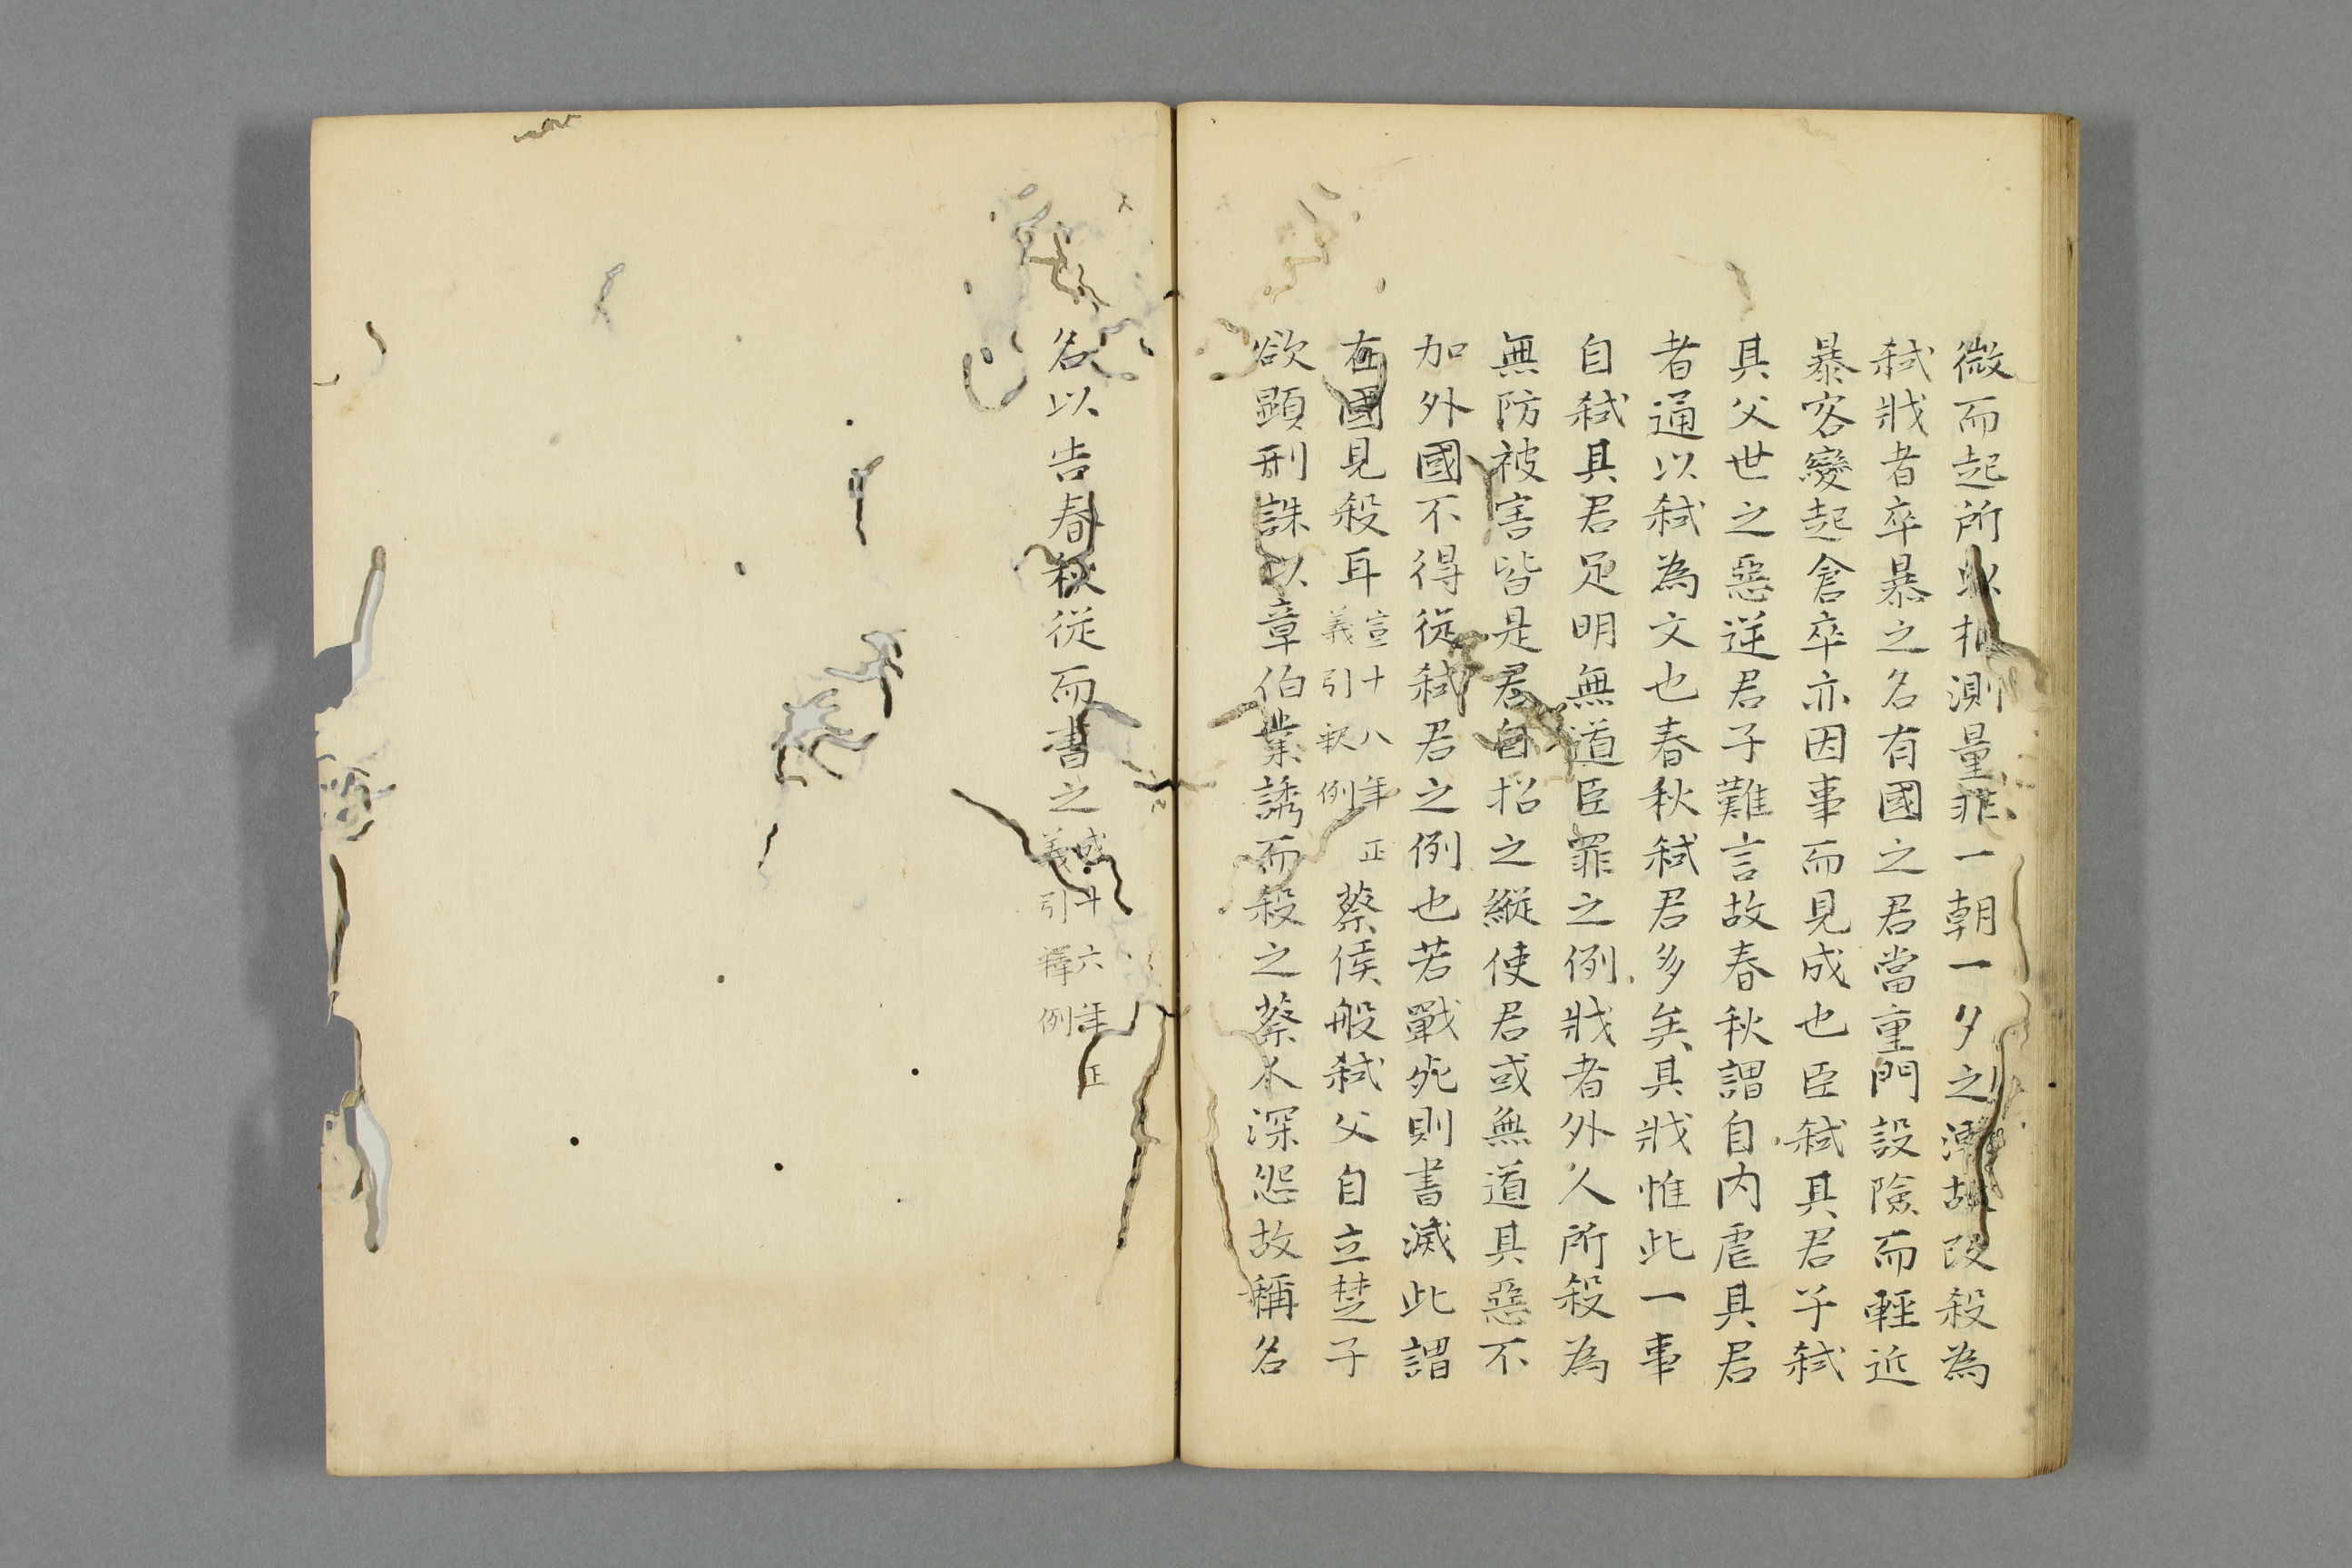 微而起所以相測量非一朝一夕之漸故改殺為
弑戕者卒暴之名有國之君當重門設險而輕近
暴客變起倉卒亦因事而見成也臣弑其君子弑
其父世之惡逆君子難言故春秋謂自内虐其君
者通以弑為文也春秋弑君多矣其戕惟此一事
自弑其君足明無道臣罪之例戕者外人所殺為
無防被害皆是君自招之縱使君或無道其惡不
加外國不得從弑君之例也若戰死則書滅此謂
在國見殺耳宣十八年正義引釈例蔡侯般弑父自立楚子
欲顕刑誅以章伯業誘而殺之蔡人深怨故稱名
名以告春秋從而書之成十六年正義引釋例